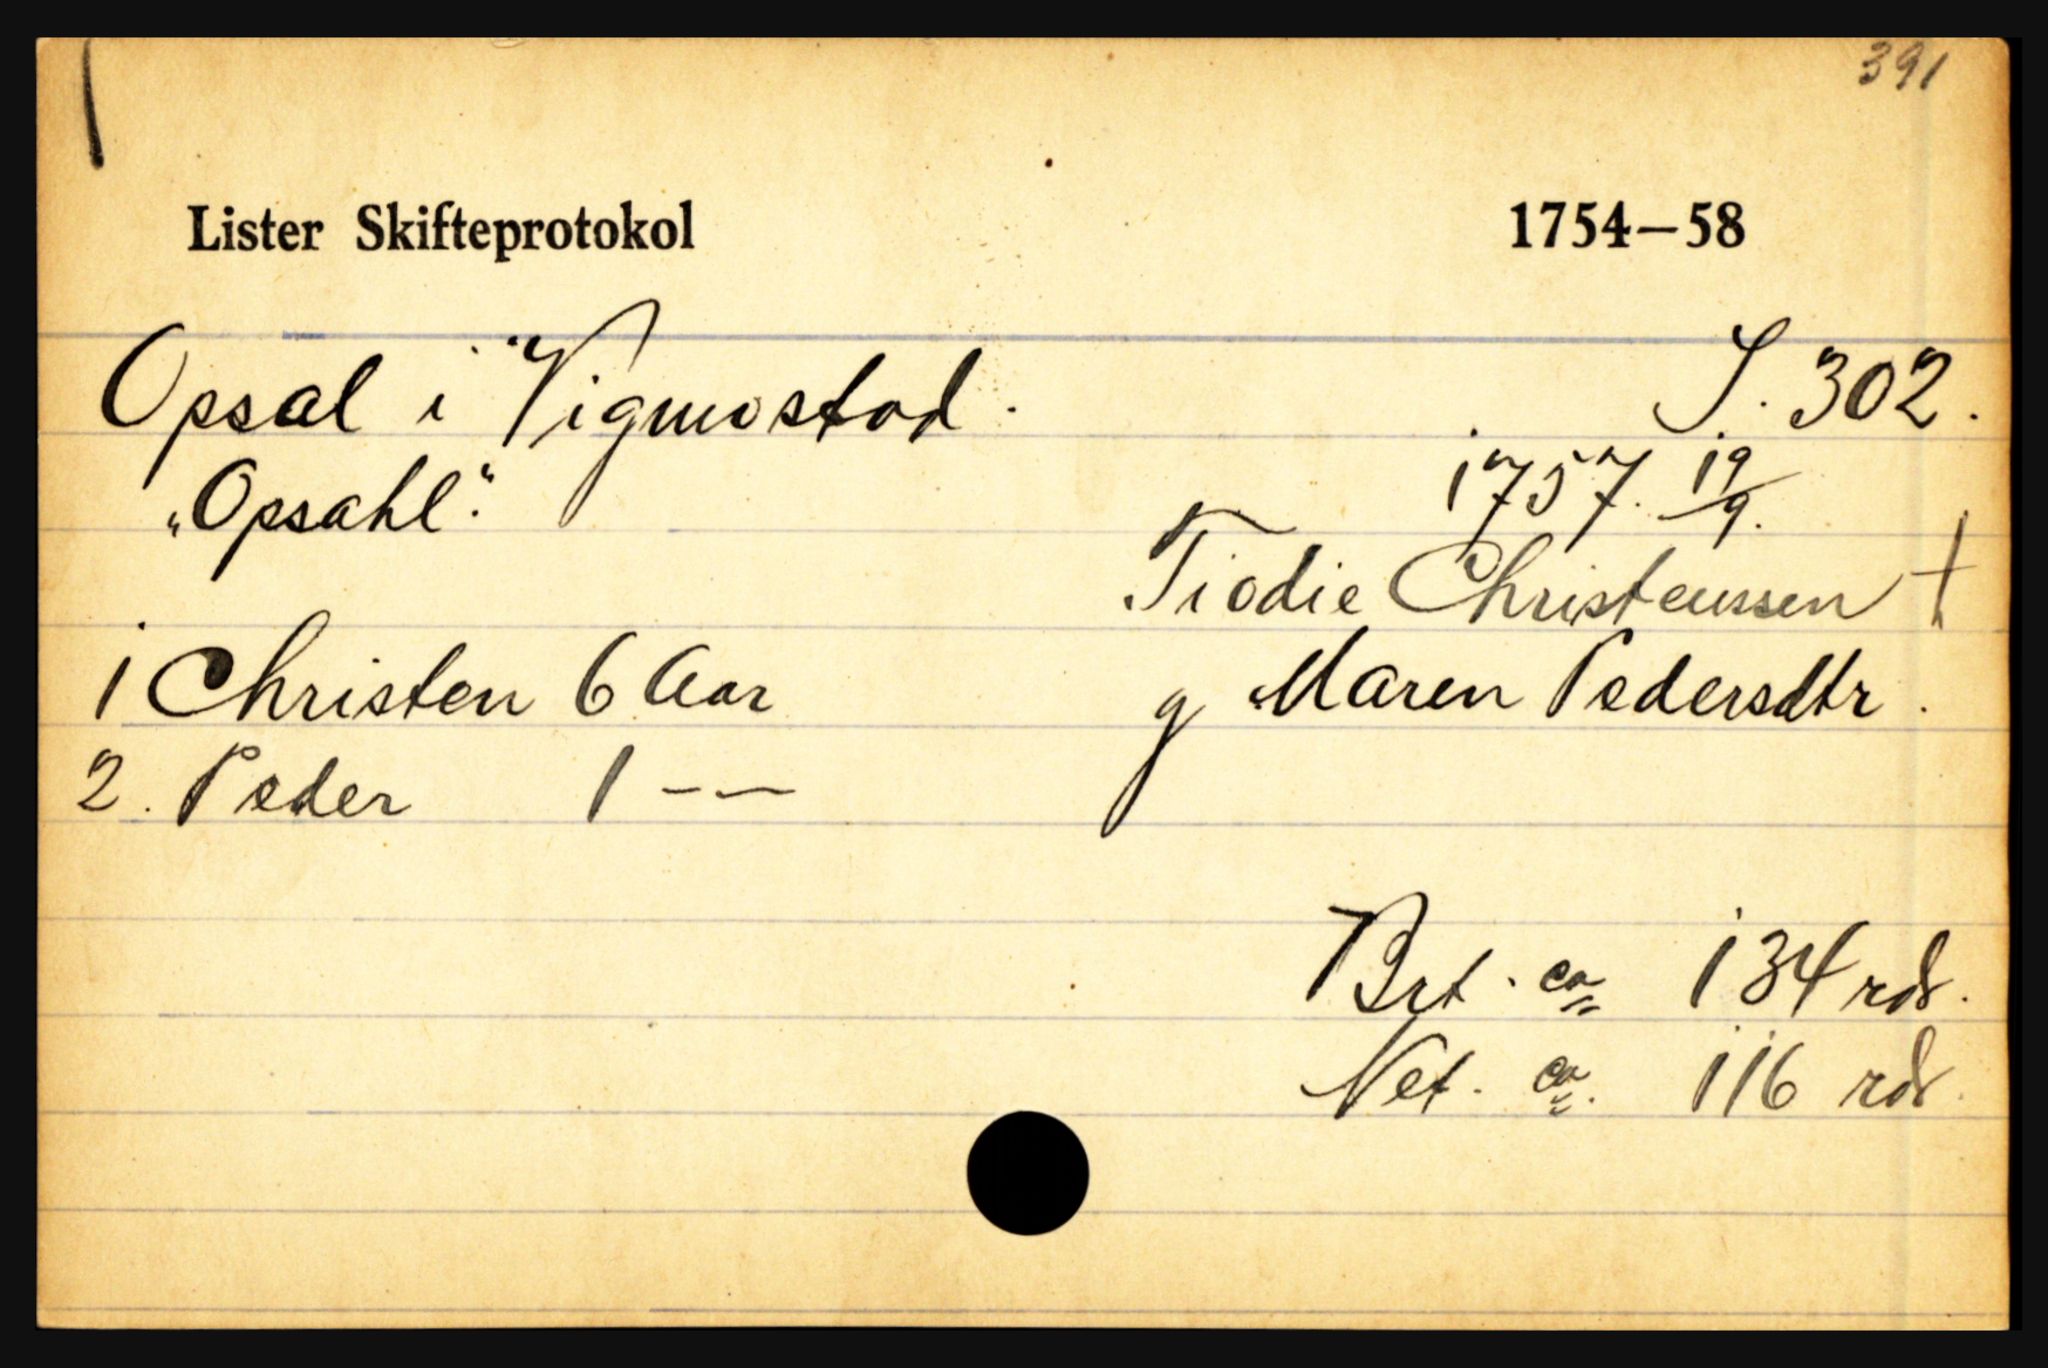 391
Lister Skifteprotokol 1754–58
Opsal i Vigmostad. S. 302.
„Opsahl“. 1757. 19/9.
Tiodie Christenssen †
1 Christen 6 Aar g Maren Pedersdtr.
2. Peder 1 – –
Brt. ca 134 rdr.
Net. ca. 116 rdr.